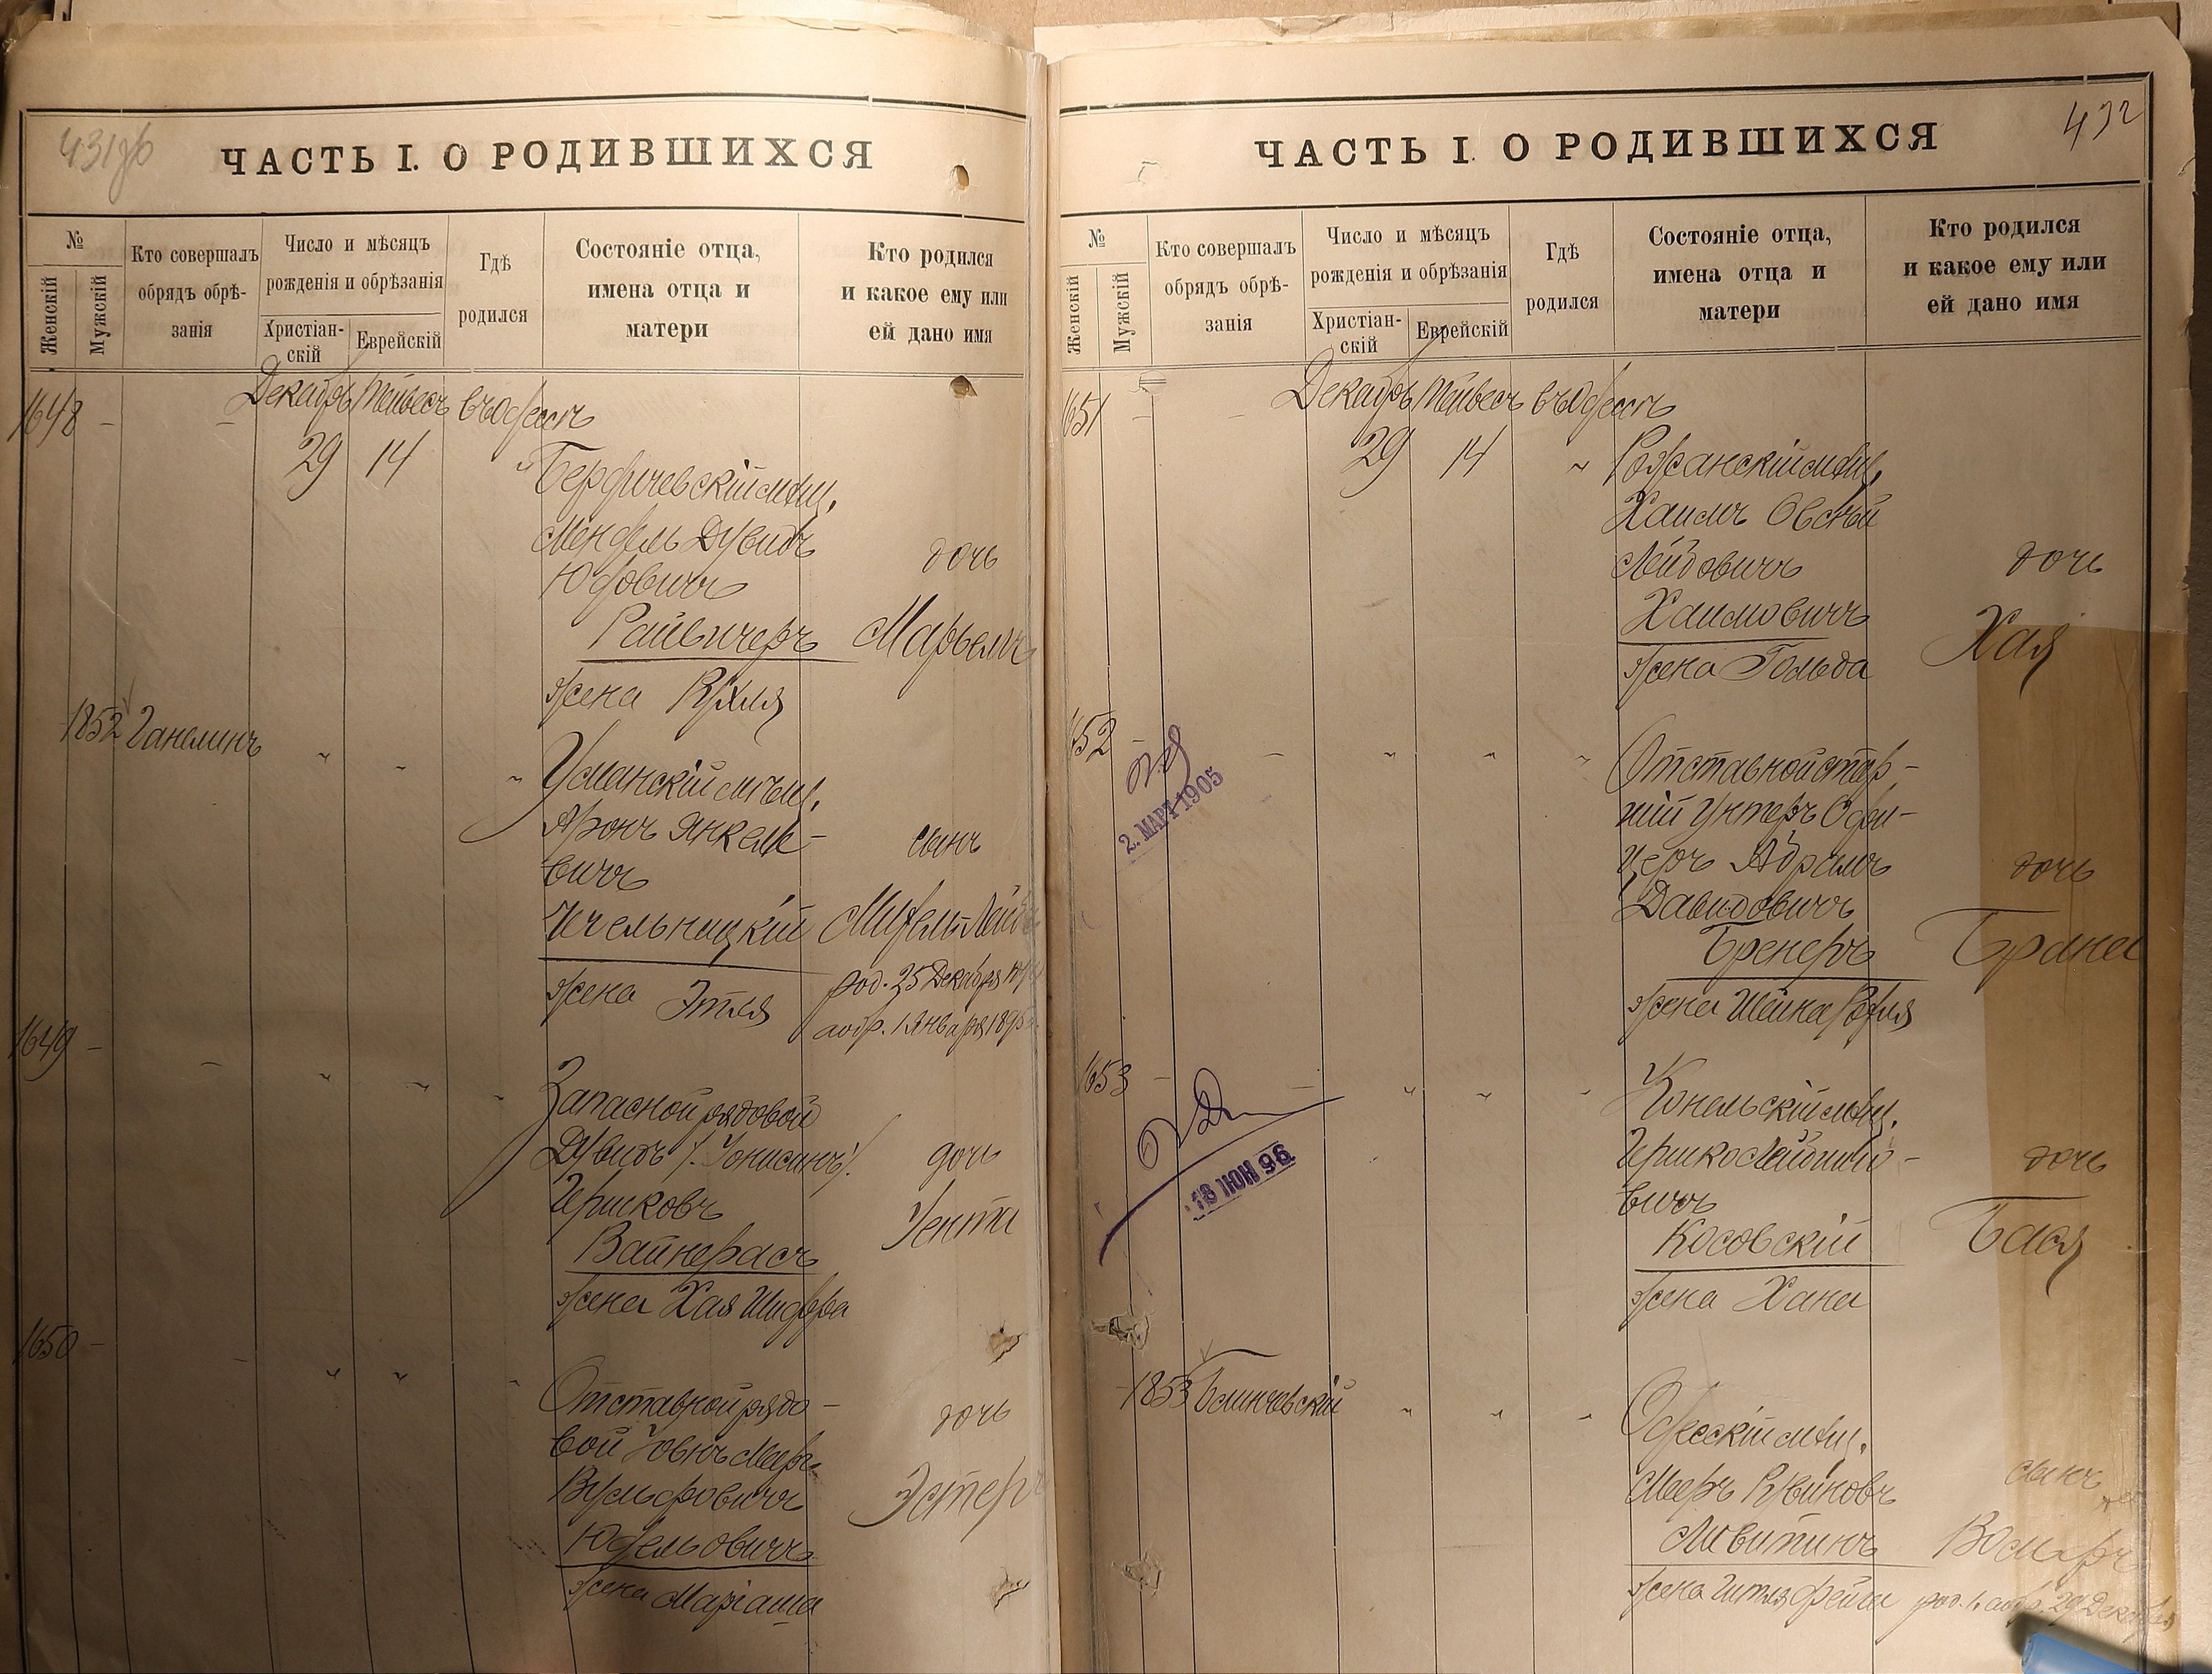 431об
ЧАСТЬ I. О РОДИВШИХСЯ
№
Женскій
Мужскій
Кто совершалъ
обрядъ обрѣ-
занія
Число и мѣсяцъ
рожденія и обрѣзанія
Христіан-
скій
Еврейскій
Гдѣ
родился
Состояніе отца,
имена отца и
матери
Кто родился
и какое ему или
ей дано имя
Декабрь Тейвесъ въ Одессѣ
1648 - -
29 14 "
Бердичевскій мѣщ.
Мендель Дувидъ
Юдовичъ
Райвичеръ
жена Рухля
дочь
Марьемъ
1852 Ганелинъ " " "
Уманскій мѣщ.
Аронъ Янкеле-
вичъ
Чечельницкій
жена Этля
сынъ
Михель-Лейбъ
род. 25 Декабря
аобр. 1 Января 1895
1649 - - " " "
Запасной рядовой
Дувидъ /. Іонисинъ/.
Гершковъ
Вайнерасъ
жена Хая Шифра
дочь
Іента
1650 - - " " "
Отставной рядо-
вой Іовнъ Мееръ
Вульфовичъ
Юдельовичъ
жена Маріаша
дочь
Эстеръ
432
ЧАСТЬ I. О РОДИВШИХСЯ
№
Женскій
Мужскій
Кто совершалъ
обрядъ обрѣ-
занія
Число и мѣсяцъ
рожденія и обрѣзанія
Христіан-
скій
Еврейскій
Гдѣ
родился
Состояніе отца,
имена отца и
матери
Кто родился
и какое ему или
ей дано имя
Декабрь Тейвесъ въ Одессѣ
1651 - -
29 14 "
Рожанскій мѣщ.
Хаимъ Овсѣй
Лейбовичъ
Хаимовичъ
жена Гольда
дочь
Хая
1652 - - " " "
2. МАРТ 1905
Отставной стар-
шій Унтеръ Офи-
церъ Абрамъ
Давидовичъ
Бренеръ
жена Шейна Рохля
дочь
Брана
1653 - - " " "
18 ІЮН 96
Конельскій мѣщ.
Гершко Лейбчико-
вичъ
Косовскій
жена Хана
дочь
Бася
1853 Блинчевскій " " "
Одесскій мѣщ.
Мееръ Рувиновъ
Левитинъ
жена Гитля Фейга
сынъ
род. аобр. 29 Декабря